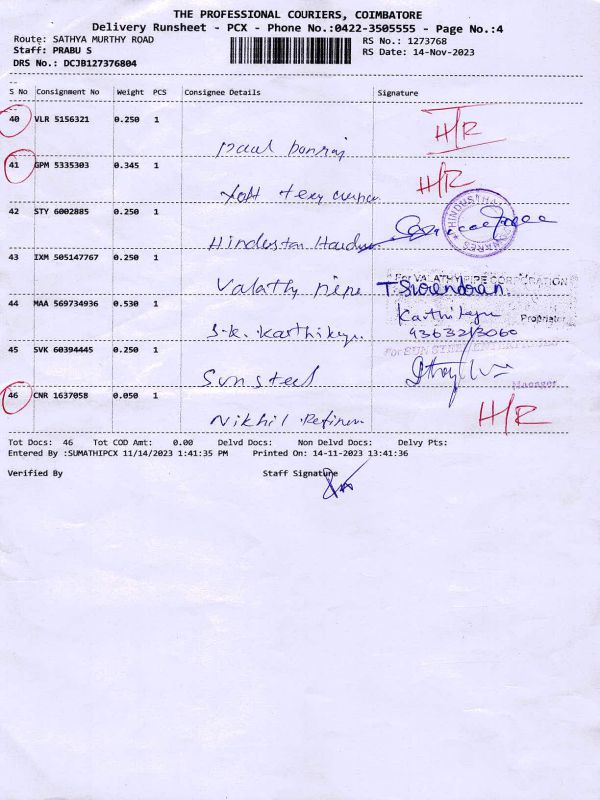 THE PROFESSIONAL COURIERS, COIMBATORE
Delivery Runsheet - PCX - Phone No.:0422-3505555 - Page No.:4
Route: SATHYA MURTHY ROAD
RS No.: 1273768
Staff: PRABU S
RS Date: 14-Nov-2023
DRS No.: DCJB127376804
S No Consignment No Weight PCS Consignee Details Signature
40 VLR 5156321 0.250 1 H/R
paul
41 GPM 5335303 0.345 1 H/R
42 STY 6002885 0.250 1
Hindustan
43 IXM 505147767 0.250 1
FOR VALATHY PIPE CORPORATION
Valathy T. Surendran.
44 MAA 569734936 0.530 1 Karthikeyan
Proprietor
S.K. Karthikeyan
45 SVK 60394445 0.250 1
For SUN STEEL
Sun steel
Manager
46 CNR 1637058 0.050 1 H/R
Nikhil
Tot Docs: 46 Tot COD Amt: 0.00 Delvd Docs: Non Delvd Docs: Delvy Pts:
Entered By :SUMATHIPCX 11/14/2023 1:41:35 PM Printed On: 14-11-2023 13:41:36
Verified By Staff Signature